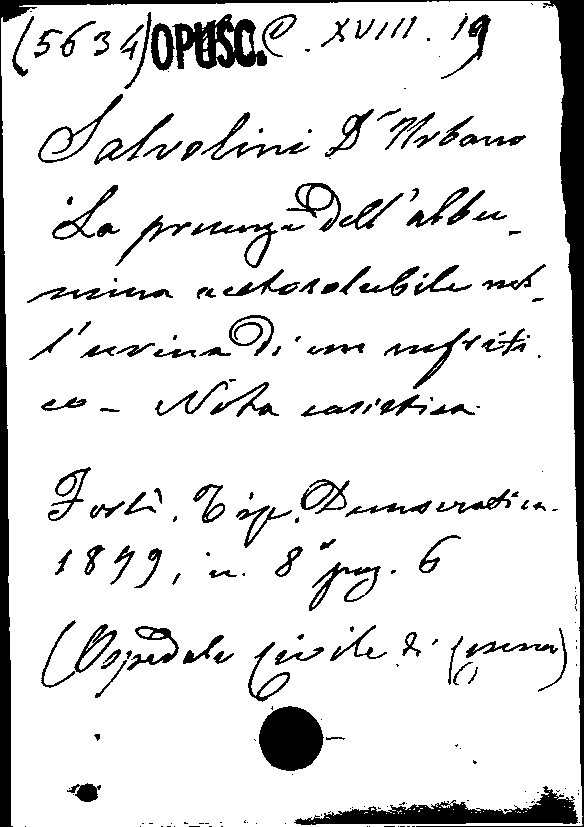 (5634) OPUSC. C. XVIII. 19
Salvolini Dr Urbano
La presenza dell'albu-
mina acetosolubile nel-
l'urina di un nefriti.
co - Nota casistica
Forlì, Tip. Democratica.
1899, in 8° pag. 6
(Ospedale Civile di Cesena)